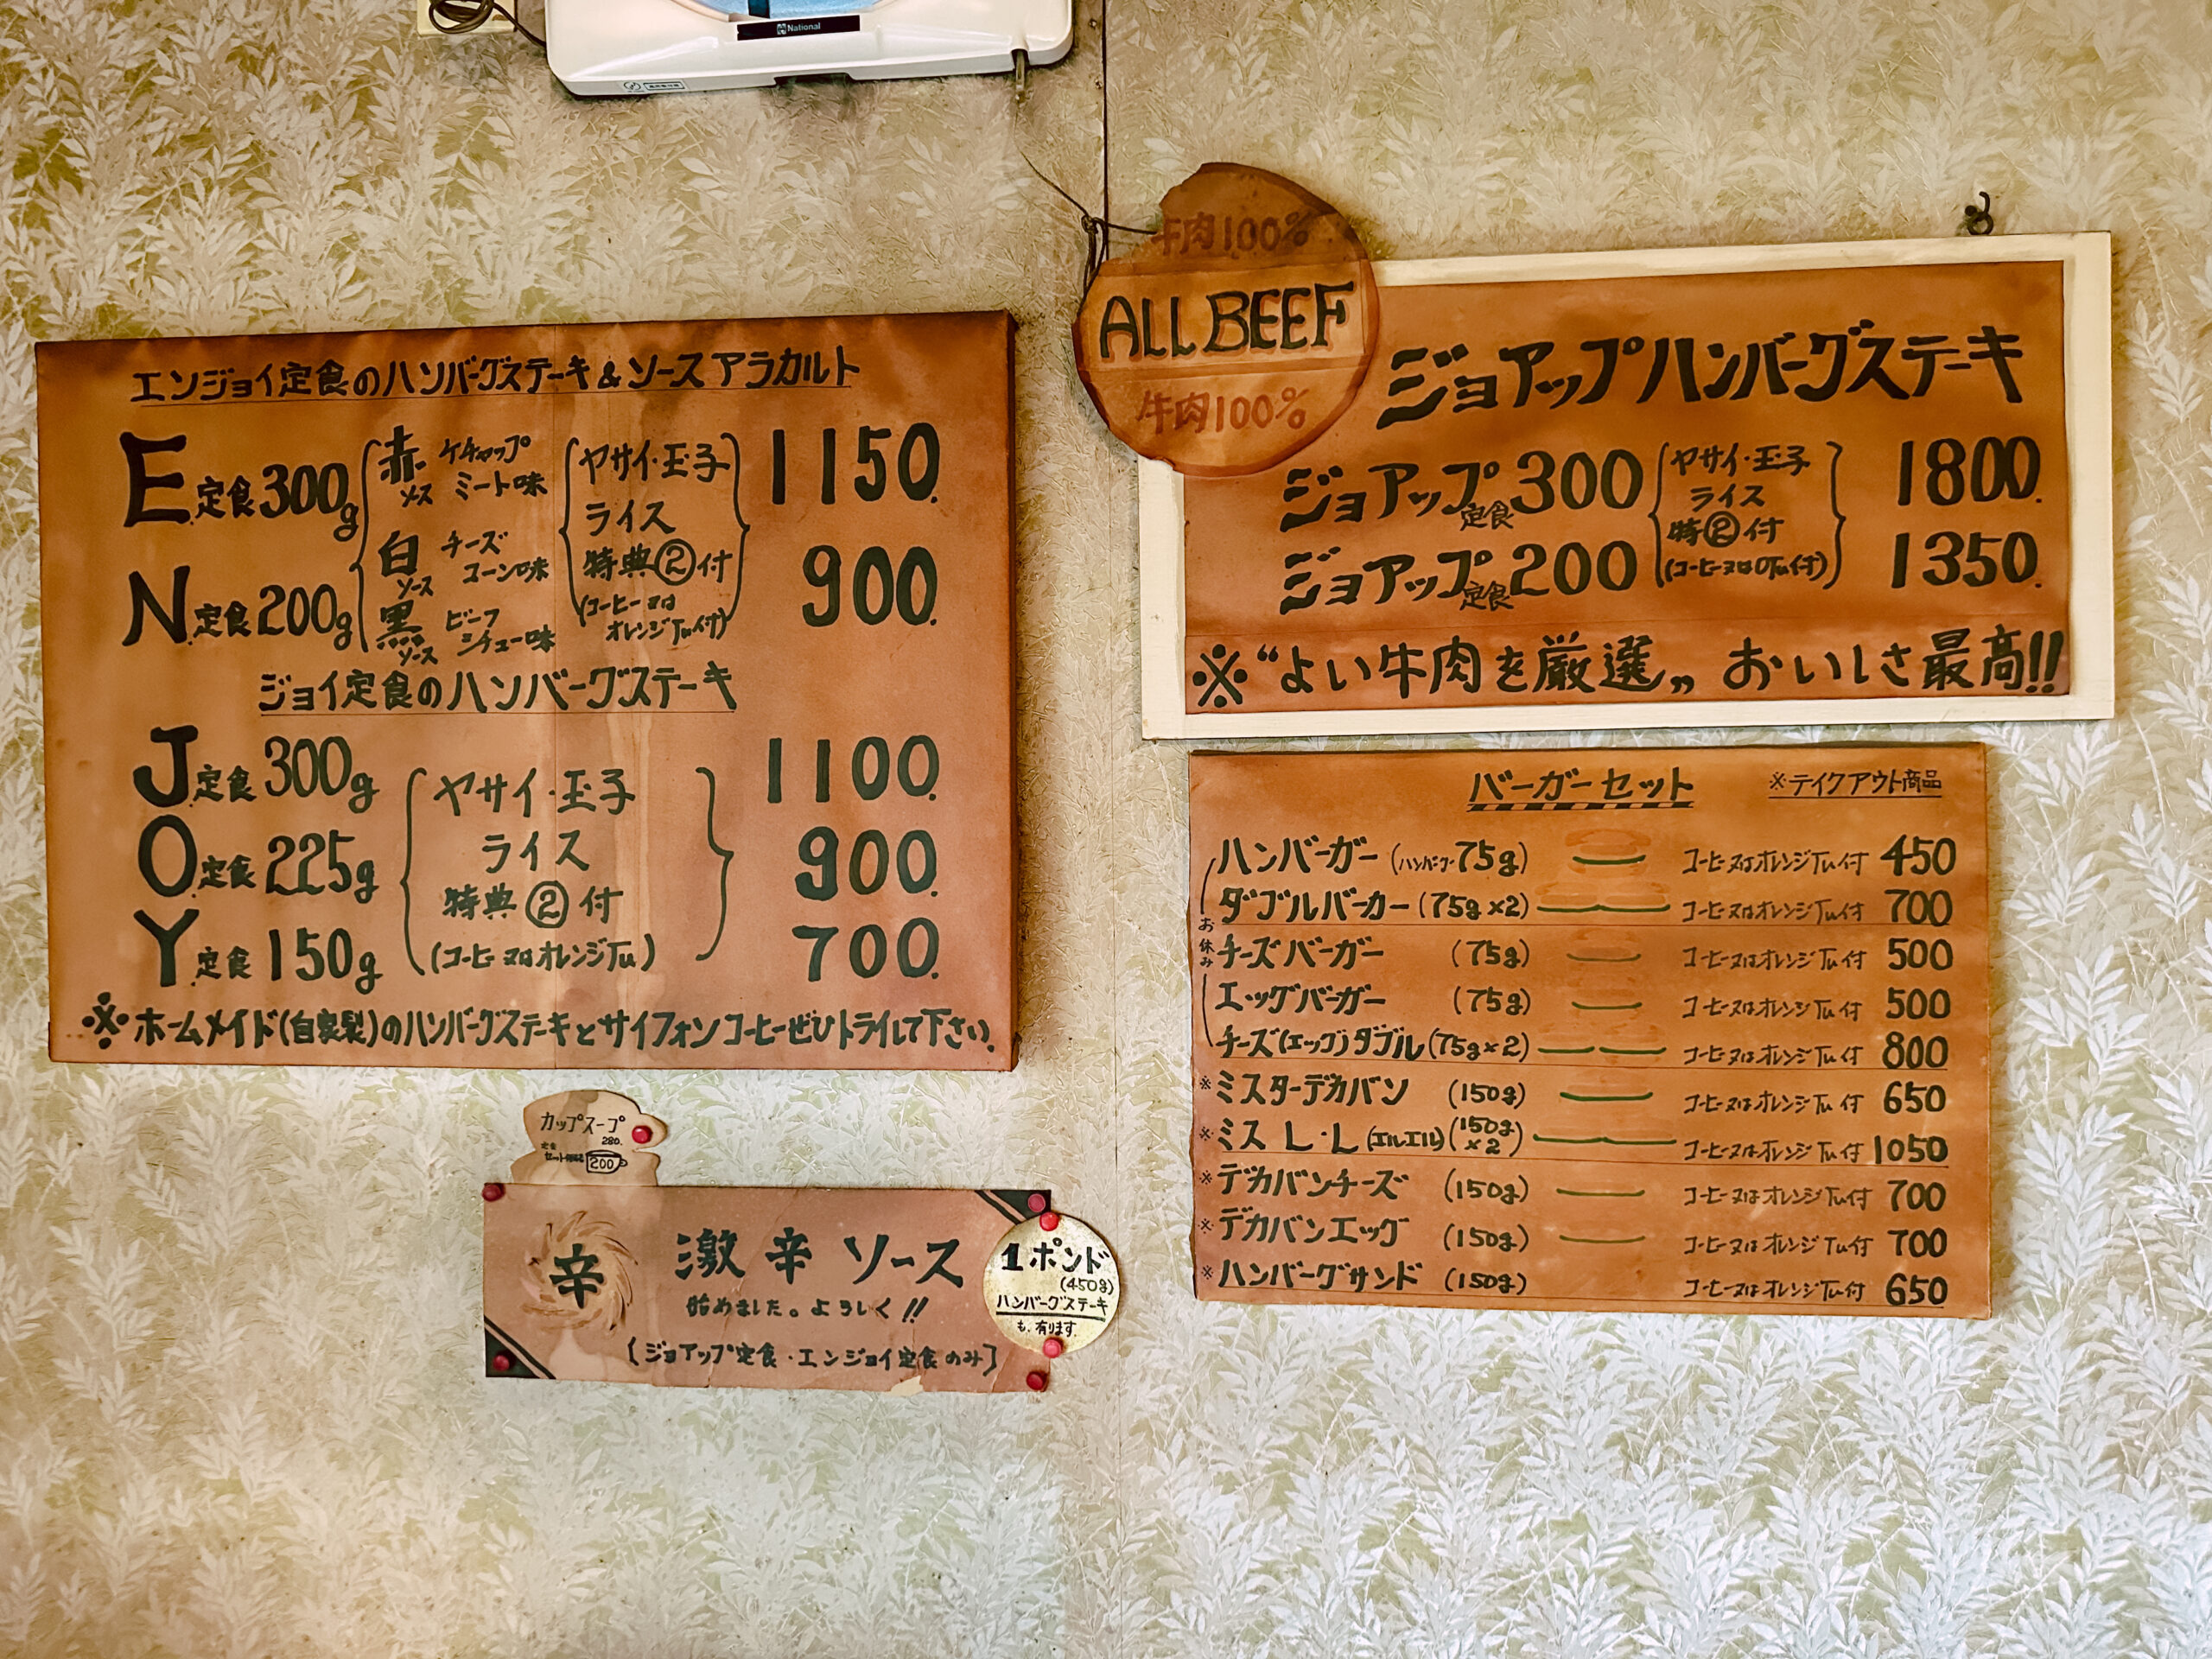 National
エンジョイ定食のハンバーグステーキ&ソースアラカルト
E定食300g
赤ソース ケチャップミート味
白ソース チーズコーン味
黒ソース ビーフシチュー味
N定食200g
ヤサイ・玉子
ライス
特典②付
(コーヒー又は
オレンジTu付)
1150.
900.
ジョイ定食のハンバーグステーキ
J定食300g 1100.
O定食225g 900.
Y定食150g 700.
ヤサイ・玉子
ライス
特典②付
(コーヒー又はオレンジTu)
※ホームメイド(自家製)のハンバーグステーキとサイフォンコーヒーぜひトライして下さい.
牛肉100%
ALL BEEF
牛肉100%
ジョアップハンバーグステーキ
ジョアップ定食300 1800.
ジョアップ定食200 1350.
ヤサイ・玉子
ライス
特②付
(コーヒー又はOTu付)
※“よい牛肉を厳選„おいしさ最高!!
バーガーセット ※テイクアウト商品
お休み
ハンバーガー(ハンバーグ75g) コーヒー又はオレンジTu付 450
ダブルバーガー(75g×2) コーヒー又はオレンジTu付 700
チーズバーガー (75g) コーヒー又はオレンジTu付 500
エッグバーガー (75g) コーヒー又はオレンジTu付 500
チーズ(エッグ)ダブル(75g×2) コーヒー又はオレンジTu付 800
※ミスターデカバン (150g) コーヒー又はオレンジTu付 650
※ミス L・L(エルエル)(150g×2) コーヒー又はオレンジTu付 1050
※デカバンチーズ (150g) コーヒー又はオレンジTu付 700
※デカバンエッグ (150g) コーヒー又はオレンジTu付 700
※ハンバーグサンド (150g) コーヒー又はオレンジTu付 650
カップスープ
280.
定食
セット
200
辛
激辛ソース
始めました。よろしく!!
[ジョアップ定食・エンジョイ定食のみ]
1ポンド
(450g)
ハンバーグステーキ
も、有ります.